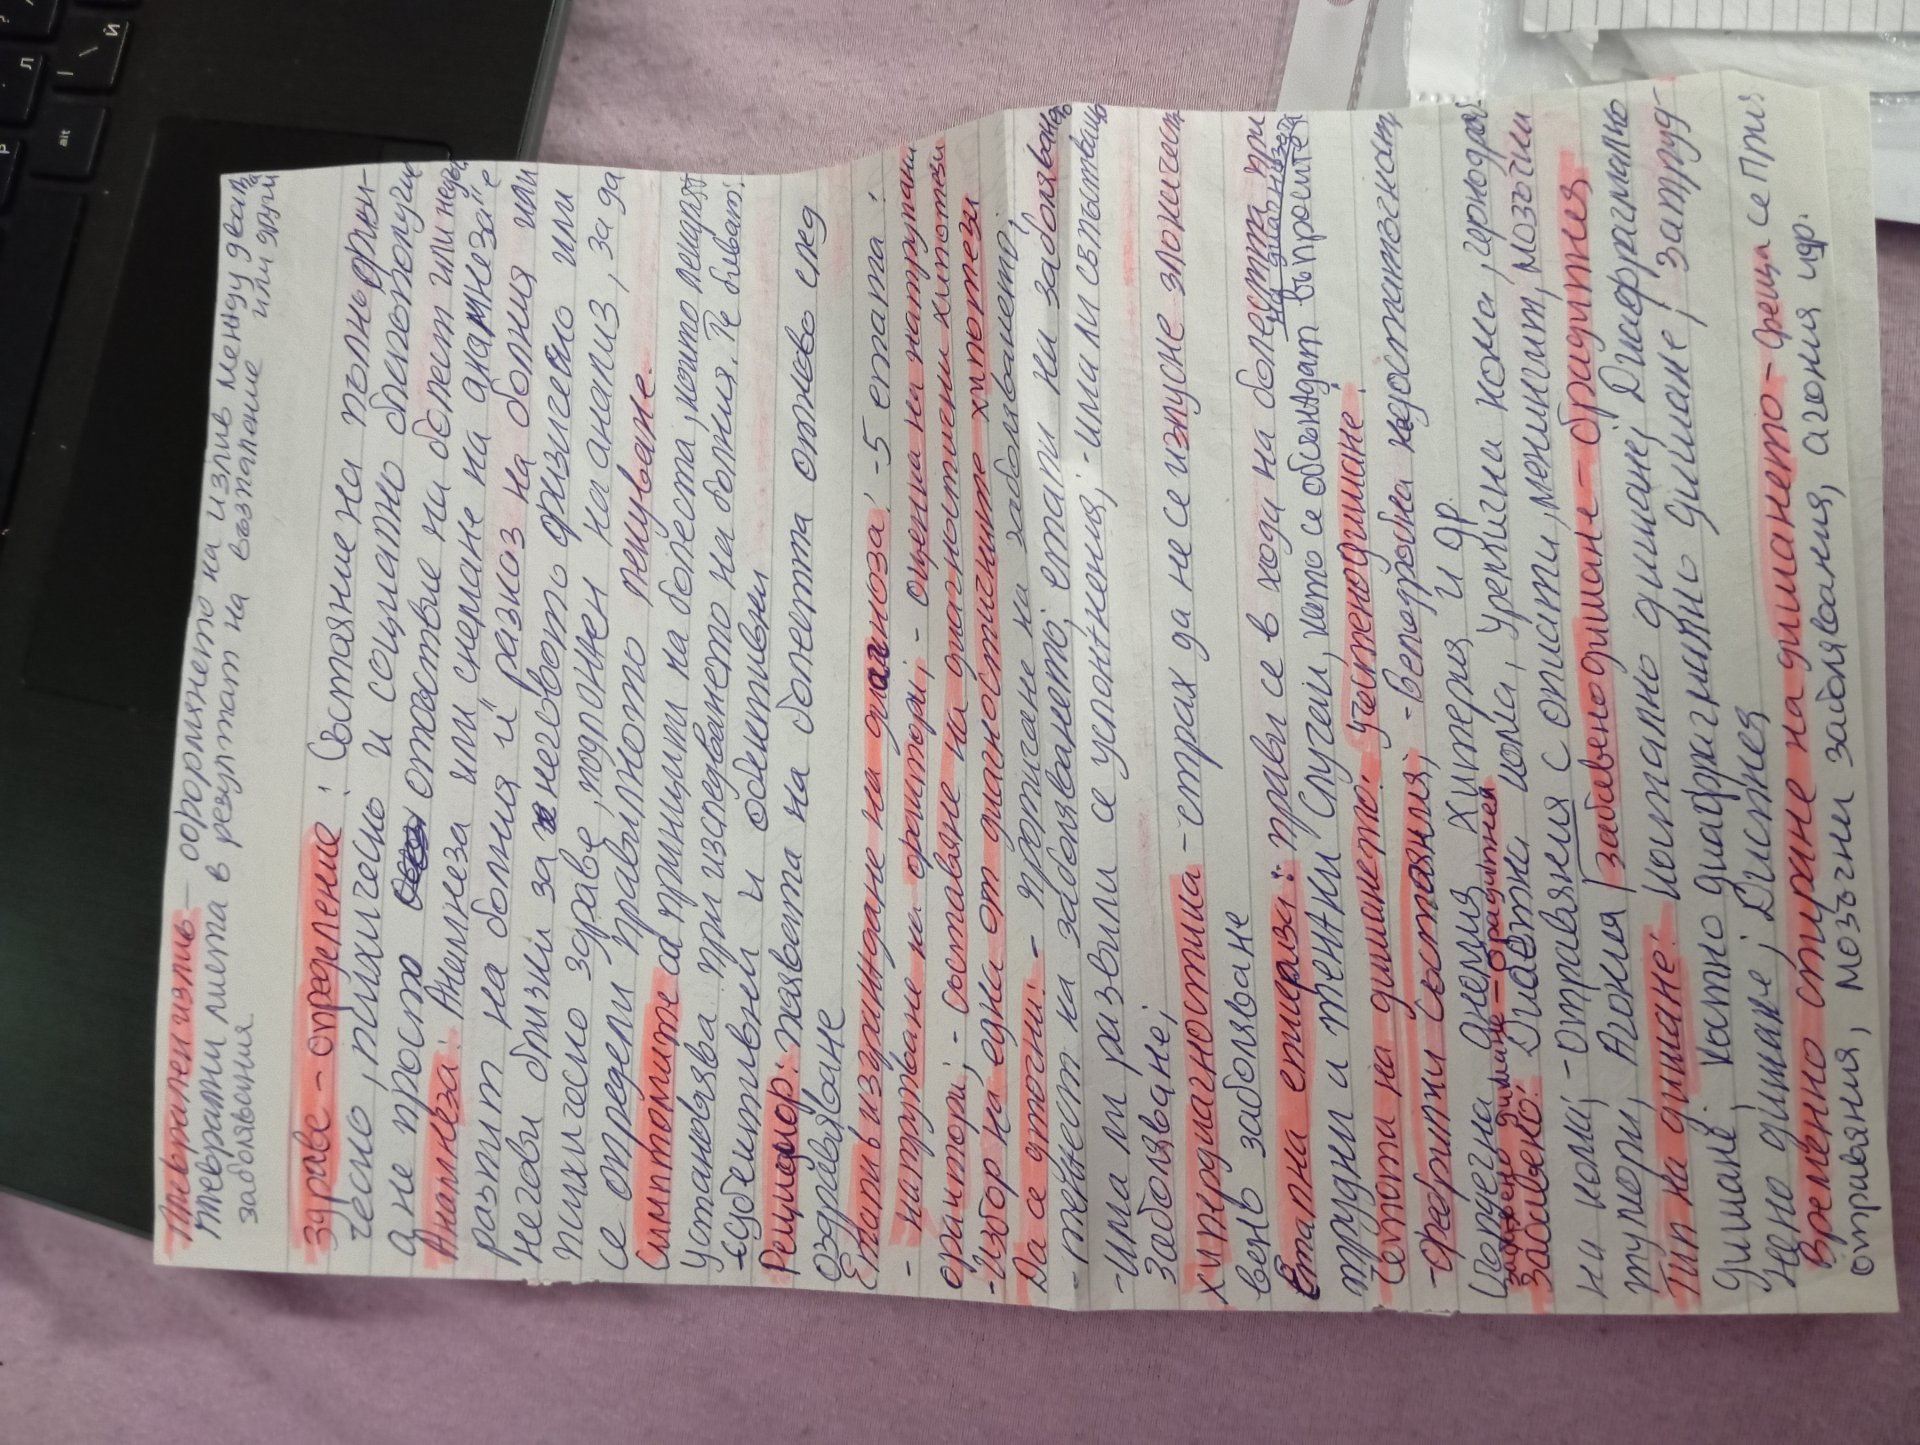 Плеврален излив – оформянето на излив между двата
плеврални листа в резултат на възпаление или други
заболявания.
Здраве – определение: Състояние на пълно физи-
ческо, психическо и социално благополучие
а не просто отсъствие на болест или недъг
Анамнеза: Анамнеза или снемане на анамнеза е
разпит на болния и разказ на болния или
негови близки за неговото физическо или
психическо здраве, подложен на анализ, за да
се определи правилното лекуване.
Симптомите са принципи на болестта, които лекарят
установява при изследването на болния. Те биват:
-субективни и обективни
Рецидив: появата на болестта отново след
оздравяване
Етапи в изграждане на диагноза: -5 етапа:
- натрупване на фактори; - оценка на натрупани
фактори; - съставяне на диагностични хипотези
-Избор на една от диагностичните хипотези
Да се уточни: - протичане на заболяването;
-тежест на заболяването; етапи на заболяване
-има ли развили се усложнения; -има ли съпътстващо
заболяване;
Хипердиагностика – страх да не се изпусне злокачест
вено заболяване
Етапна епикриза: прави се в хода на болестта при
трудни и тежки случаи, като се обсъждат въпросите
на диагнозата
Честота на дишането: Учестено дишане:
-фебрилни състояния; -белодробна недостатъчност
Сърдечна анемия, хистерия и др.
Забавено: Диабетна кома, уремична кома, чернодроб
забавено дишане – брадипнея
на кома; -отравяния с опиати, менингит, мозъчни
тумори, Агония забавено дишане – брадипнея
Тип на дишане: Костално дишане; Диафрагмално
дишане; Костно диафрагмално дишане; затруд-
нено дишане; Диспнея
Временно спиране на дишането – среща се при
отравяния, мозъчни заболявания, агония и др.